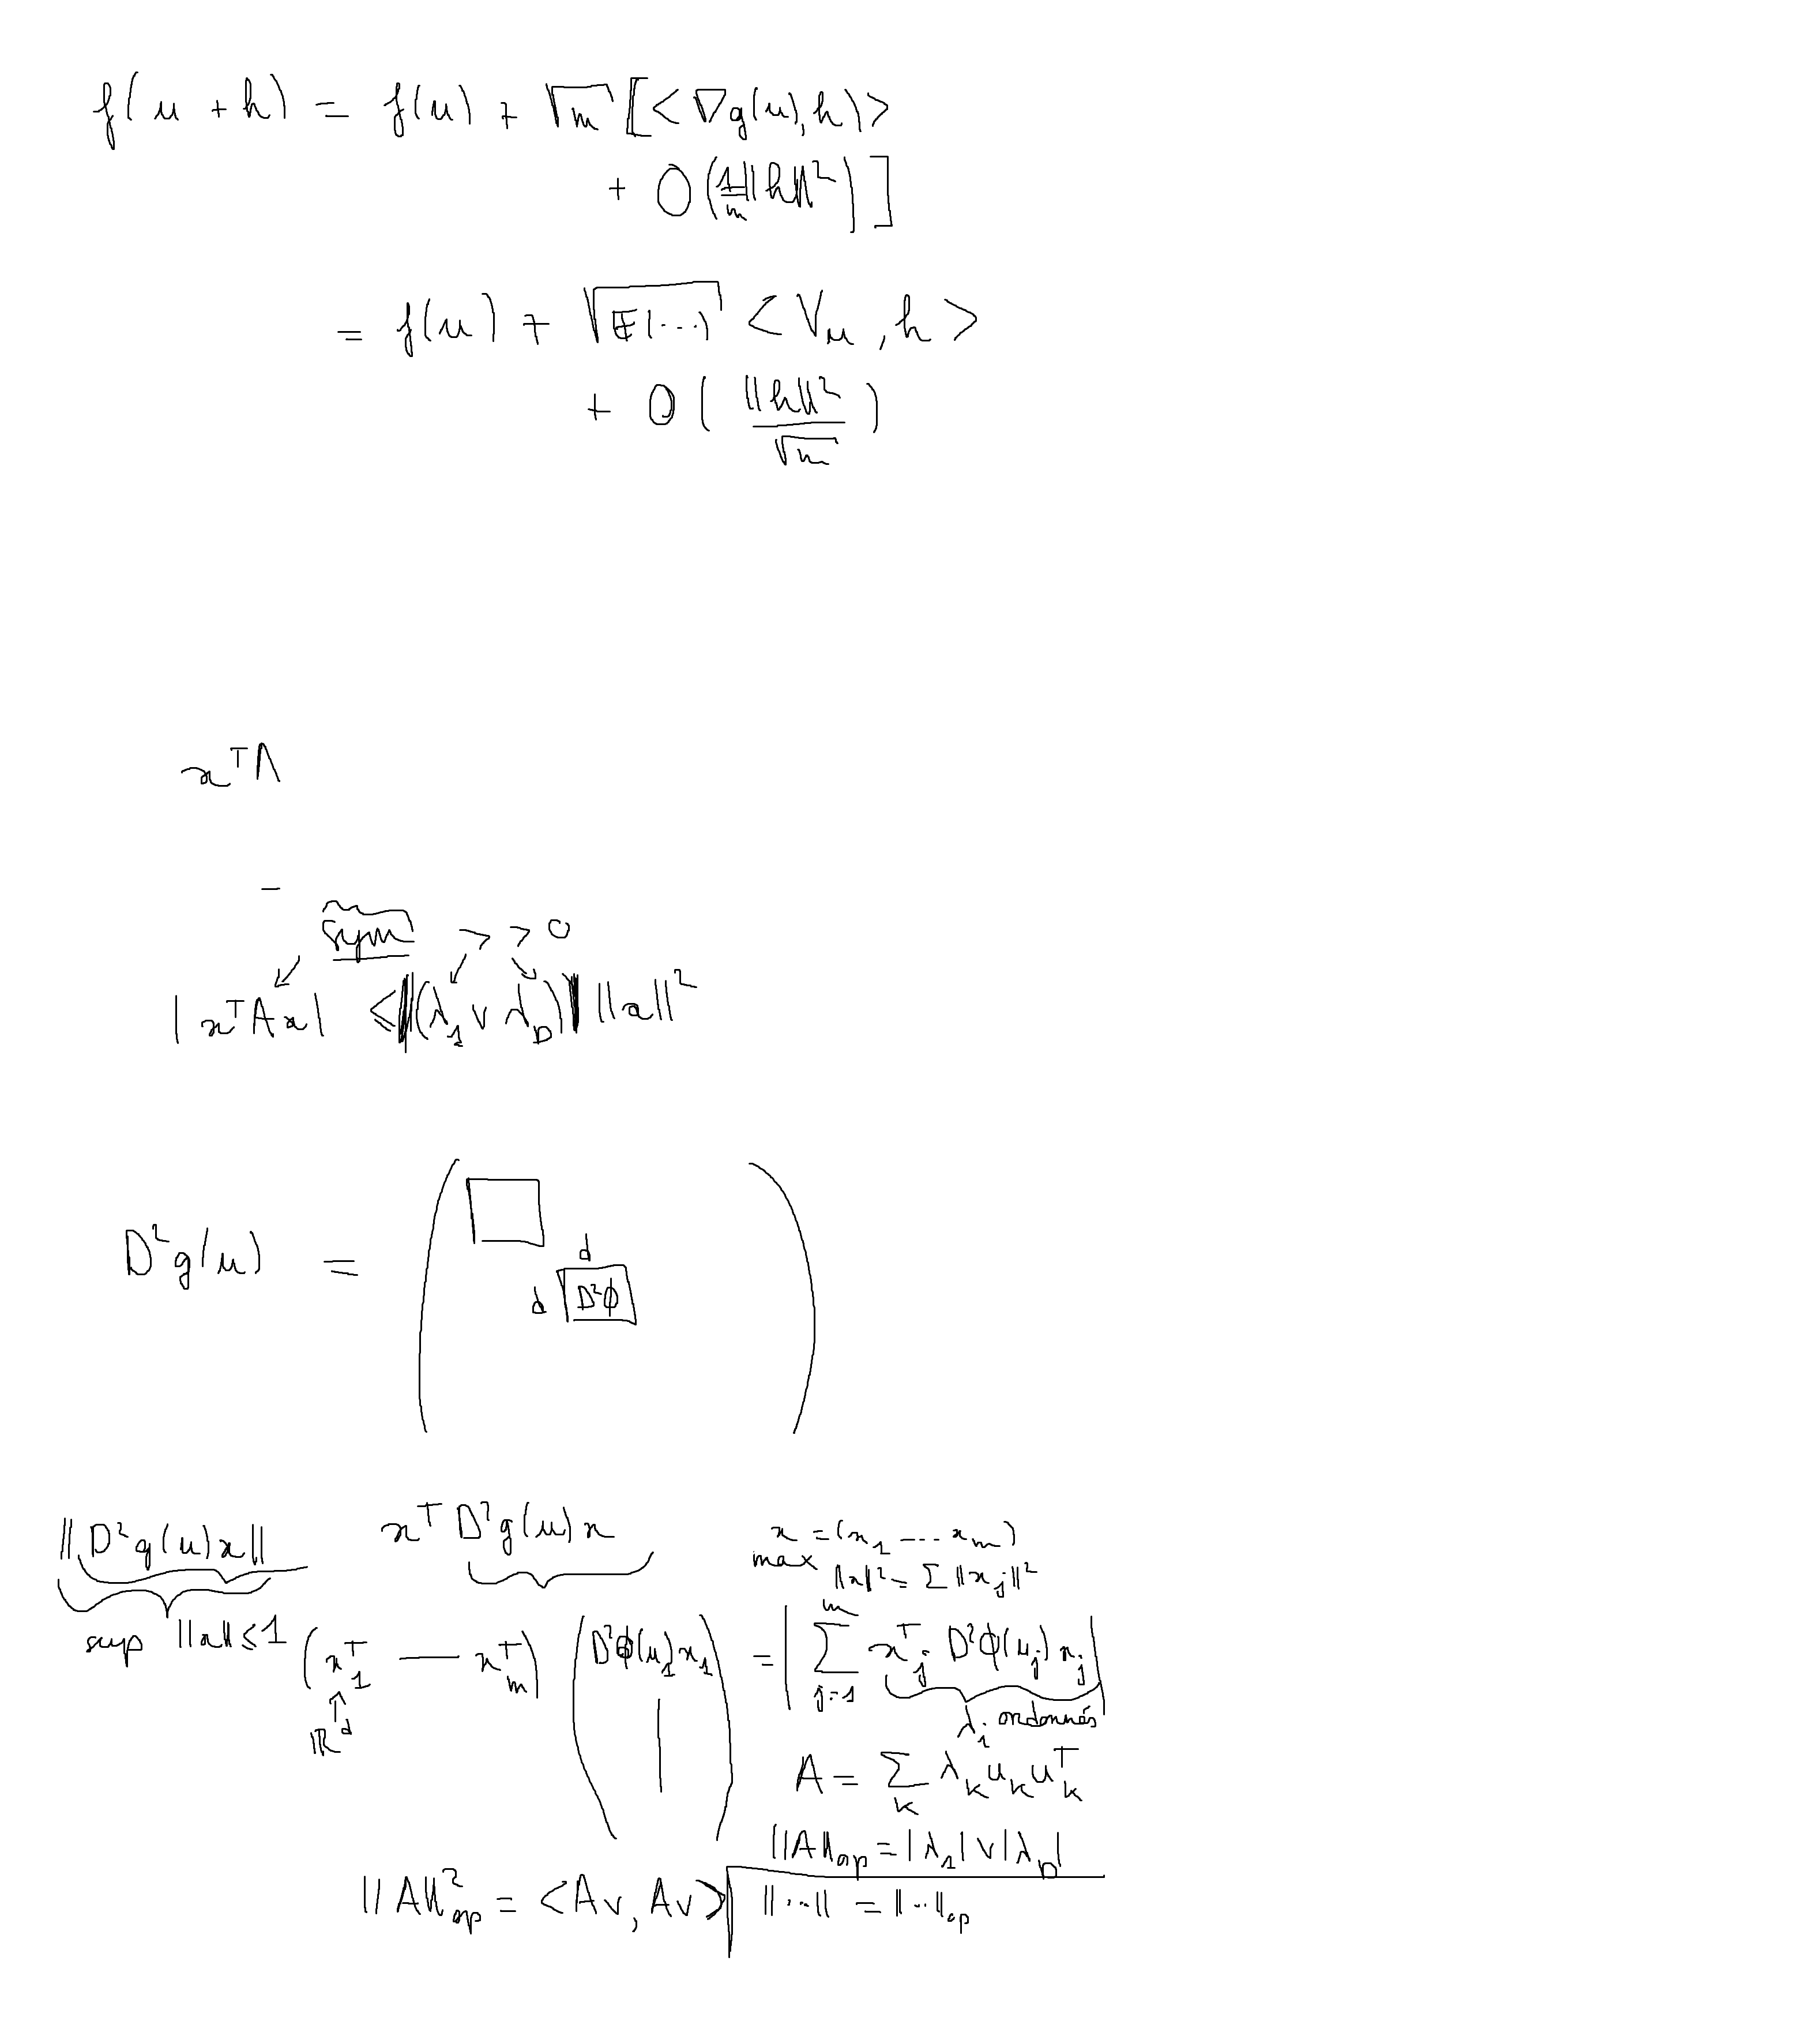 f(u + h) = f(u) + √m [<∇g(u), h)>
+ O(1/m ||h||²)]
= f(u) + √E(...) <V_u , h>
+ O( ||h||² / √m )
x^T A
–
sym > > 0
|x^T A x| ≤ (λ_1 ∨ λ_D) ||x||²
D²g(u) =
d
d D²ϕ
||D²g(u)x|| x^T D²g(u)x x = (x_1 ... x_m)
max ||x||² = Σ ||x_j||²
sup ||x|| ≤ 1 (x_1^T — x_m^T) (D²ϕ(u_1)x_1 |) = |Σ_{j=1}^m x_j^T D²ϕ(u_j) x_j|
ℝ^d λ_i ordonnés
A = Σ_k λ_k u_k u_k^T
||A||_op = |λ_1| ∨ |λ_D|
||A||²_op = <Av, Av> ||...|| = ||..||_op